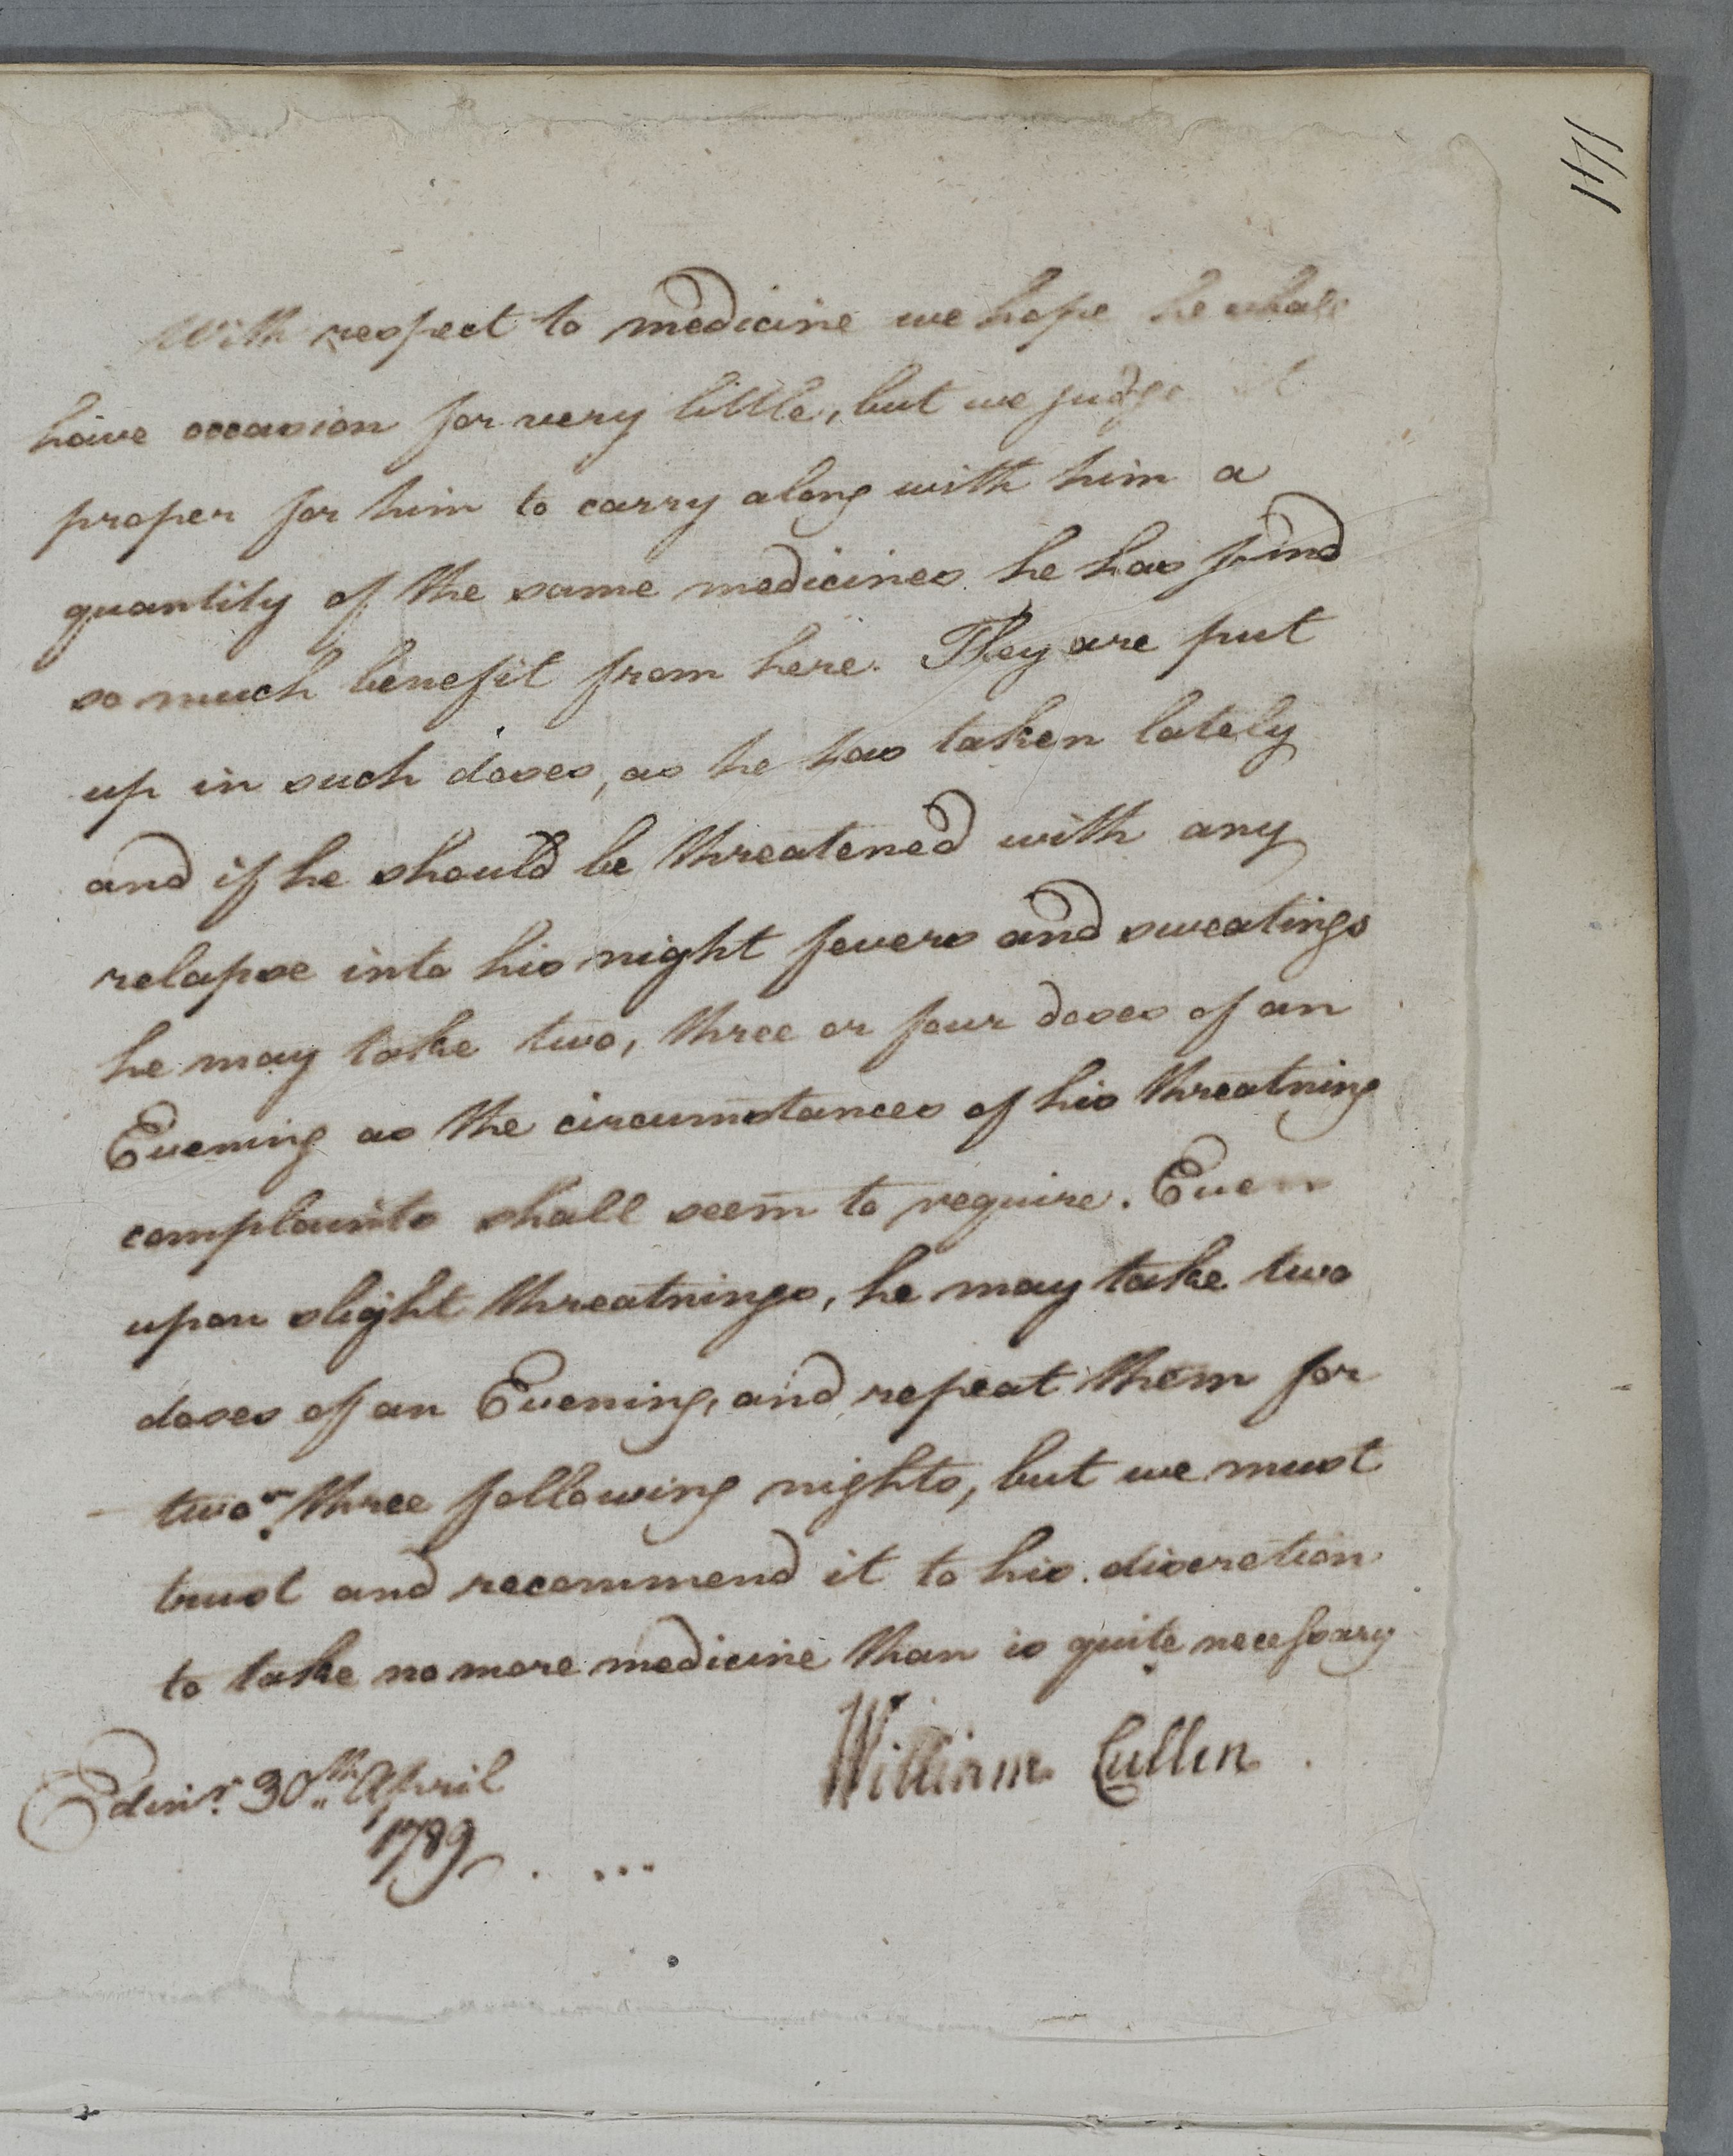 141
With respect to medicine we hope he shall
have occasion for very little, but we judge it
proper for him to carry along with him a
quantity of the same medicines he has found
so much benefit from here. They are put
up in such doses, as he has taken lately
and if he should be threatened with any
relapse into his night fevers and sweatings
he may take two, three or four doses of an
Evening as the circumstances of his threatning
complaints shall seem to require. Even
upon slight threatnings, he may take two
doses of an Evening, and repeat them for
two or three following nights, but we must
trust and recommend it to his discretion
to take no more medicine than is quite necessary
William Cullen.
Edinr. 30th April
1789